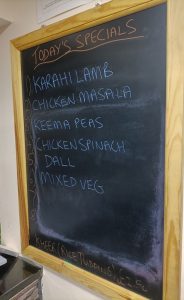 TODAY'S SPECIALS
KARAHI LAMB
CHICKEN MASALA
KEEMA PEAS
CHICKEN SPINACH
DALL
MIXED VEG
KHEER (RICE PUDDING)